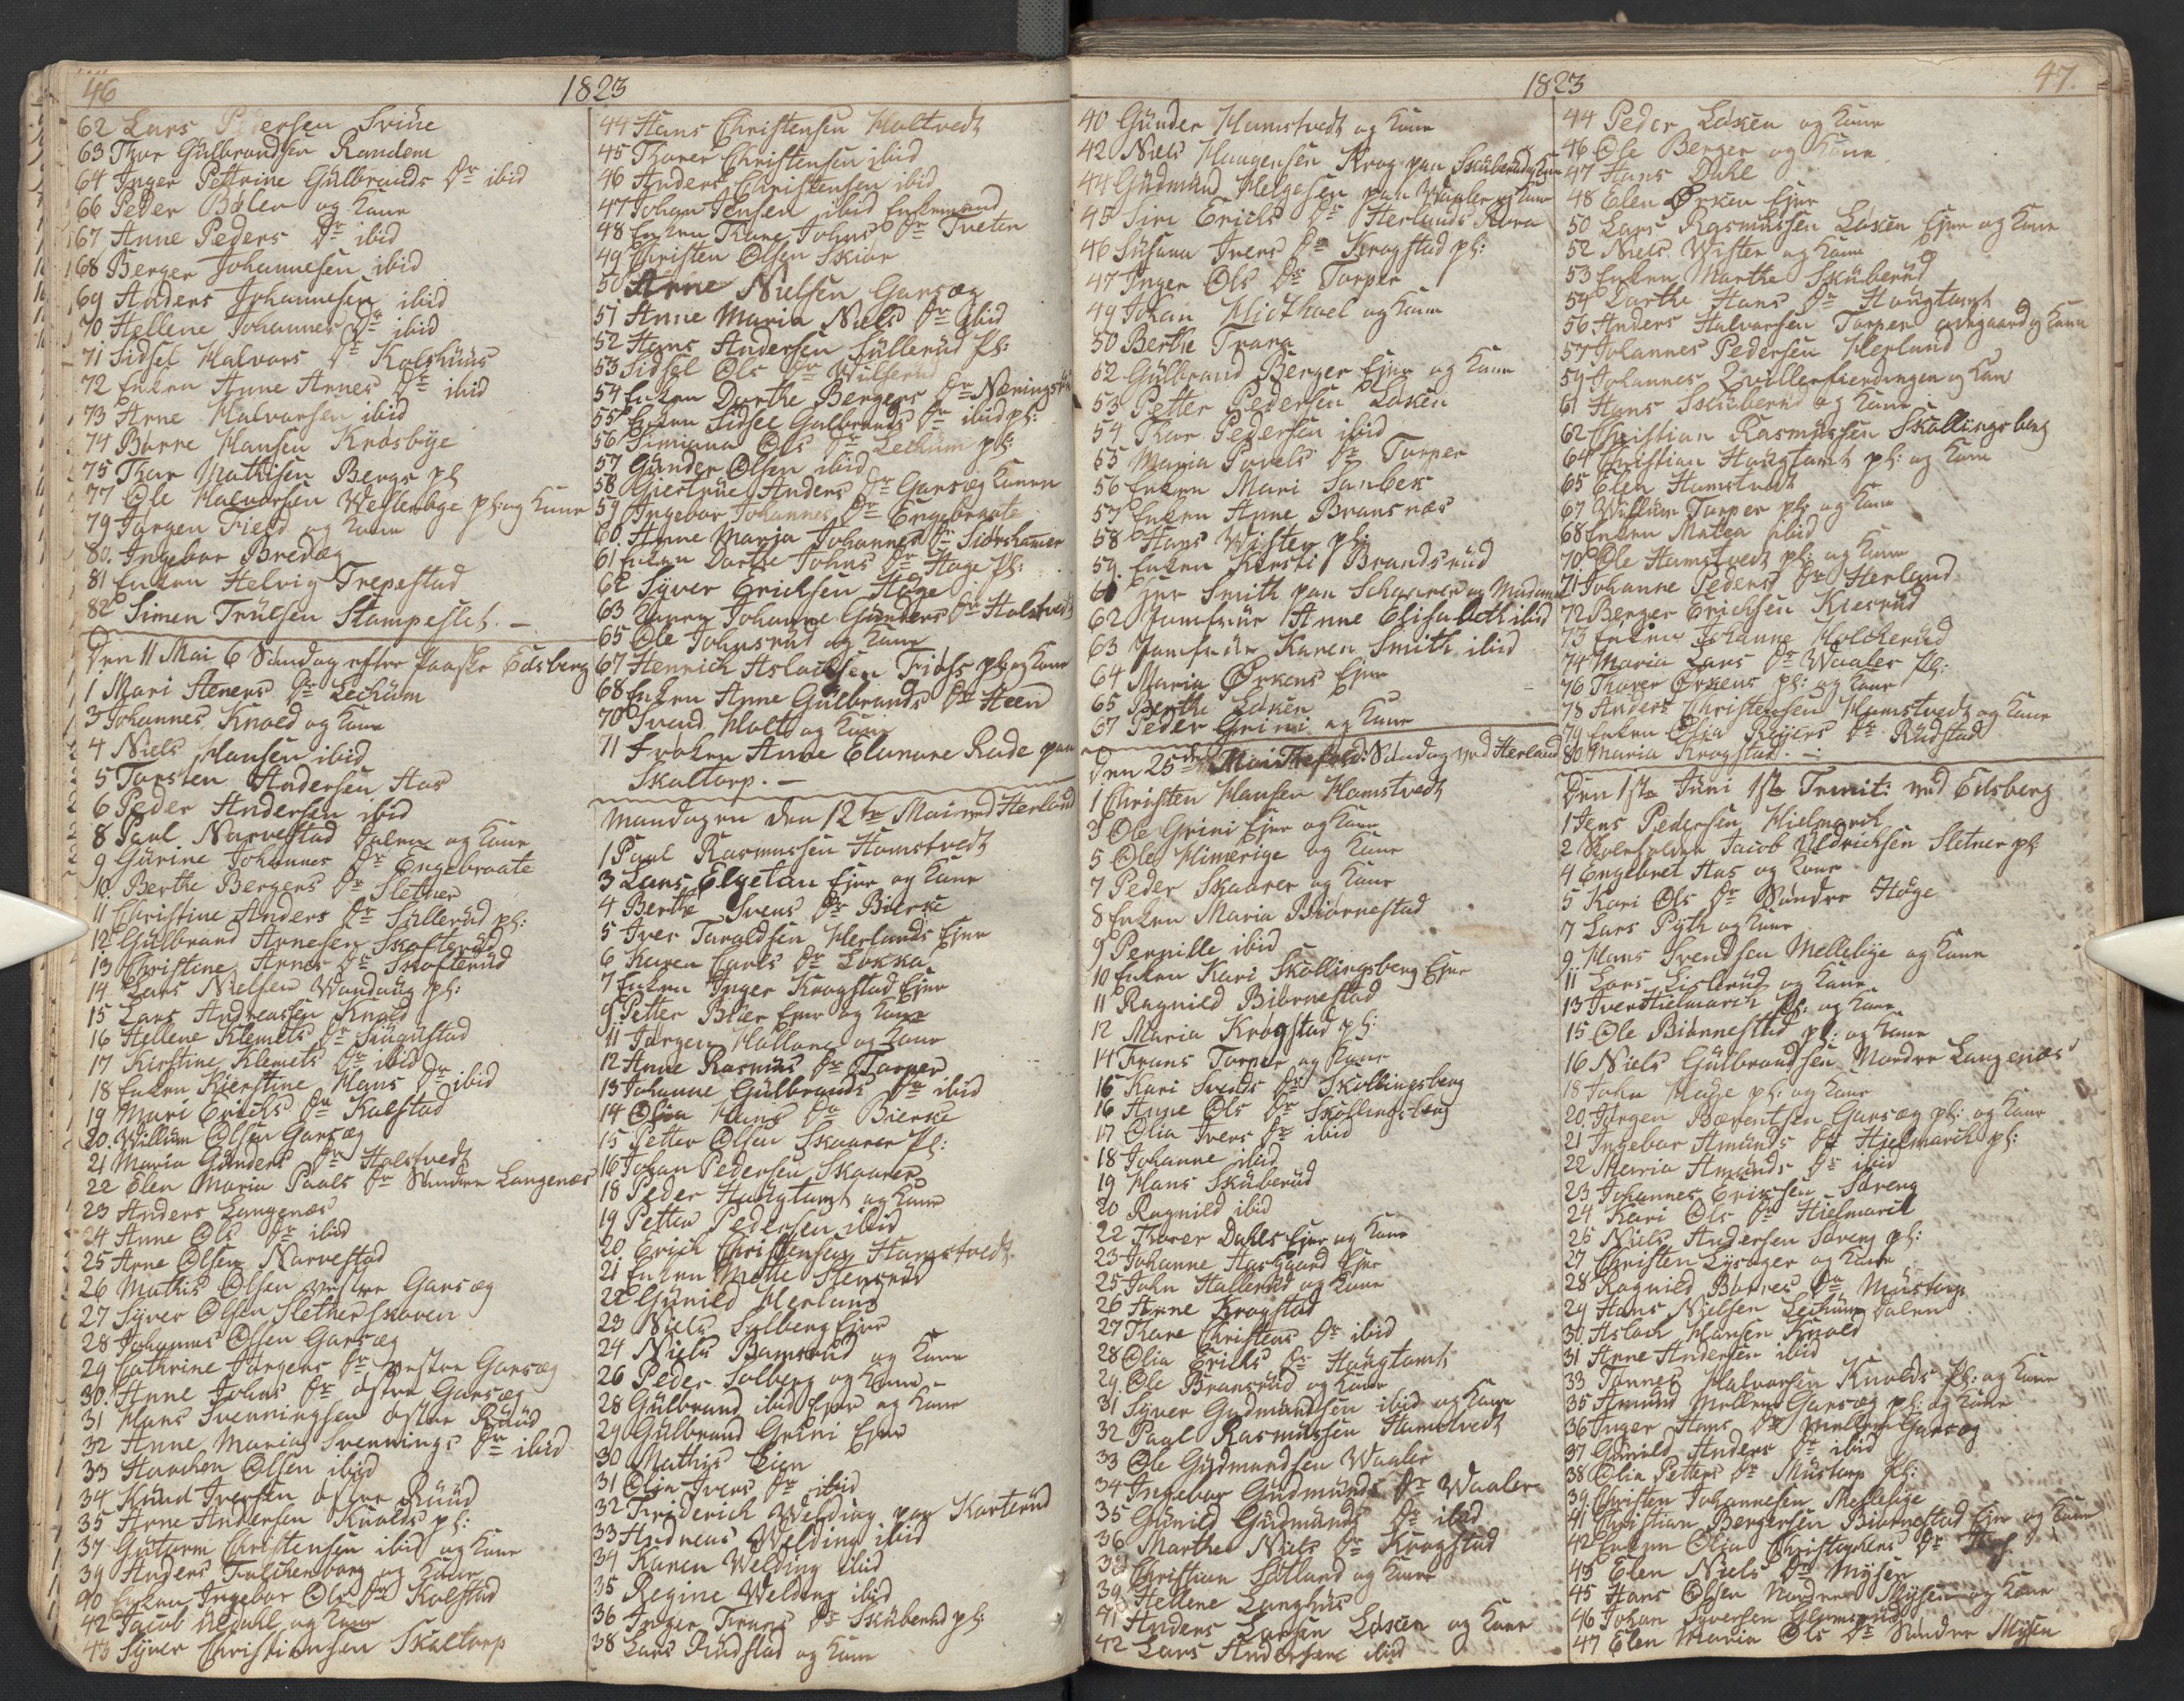 46
1823
62 Lars Pedersen Sviüe
63 Thor Gulbrandsen Randem
64 Inger Pettrine Gülbrands Dr ibid
66 Peder Bøler og Kone
67 Anne Peders Dr ibid
68 Berger Johannesen ibid
69 Anders Johannesen ibid
70 Hellene Johannes Dr ibid
71 Sidsel Halvors Dr Kolshuus
72 Enken Anne Arnes Dr ibid
73 Arne Halvorsen ibid
74 Borre Hansen Krosbÿe
75 Thor Mathisen Bergs pl
77 Ole Halvorsen Wellenbye pl: og Kone
79 Jørgen Field og Kone
80. Ingebor Bredæg
81 Enken Helvig Trepestad
82 Simen Truelsen Stampeslet. —
Den 11 Mai 6 Søndag efter Paaske Edsberg
1 Mari Steners Dr Lechum
3 Johannes Knold og Kone
4 Niels Hansen ibid
5 Torsten Andersen Aas
6 Peder Andersen ibid
8 Paul Narvestad og Kone
9 Gurine Johannes Dr Engebraate
10. Berthe Bergers Dr Sletner
11 Christine Anders Dr Sullerud pl:
12 Gülbrand Arnesen Skofterud
13 Christine Arnes Dr Skofterud
14 Lars Nielsen Wandüg pl:
15 Lars Andreassen Knold
16 Hellene Klemets Dr
17 Kirstine Klemets Dr ibid
18 Enken Kierstine Hans Dr ibid
19 Mari Erichs Dr Kolstad
20. Willum Olsen Garseg
21 Maria Günders Dr Holstvedt
22 Elen Maria Pauls Dr Søndre Langenæs
23 Anders Langenæs
24 Anne Ols Dr ibid
25 Arne Olsen Narvestad
26 Mathis Olsen vestre Garseg
27 Syver Olsen Sletnerskoven
28 Johannes Olsen Garseg
29 Cathrine Jørgens Dr vestre Garseg
30. Anne Johns Dr østre Garseg
31 Hans Svenningsen østre Rüüd
32 Anne Maria Svennings Dr ibid
33 Haachen Olsen ibid
34 Knud Iversen østre Rüüd
35 Arne Andersen Knolds pl:
37 Guttorm Christensen ibid og Kone
39 Anders Falchenborg og Kone
40 Enken Ingebor Ols Dr Kolstad
42 Jacob Nedahl og Kone
43 Syver Christiansen Skaltorp
44 Hans Christensen Holtvedt
45 Thorer Christensen ibid
46 Anders Christensen ibid
47 Johan Jensen ibid Enkemand
48 Enken Thore Johns Dr Tveten
49 Christen Olsen Skiør
50 Arne Nielsen Garseg
51 Anne Maria Niels Dr ibid
52 Hans Andersen Sullerud Pl:
53 Sidsel Ols Dr Wilserud
54 Enken Dorthe Bergers Dr
55 Enken Sidsel Gulbrands Dr ibid pl:
56 Simiana Ols Dr Lechum pl:
57 Günder Olsen ibid
58 Giertrüe Anders Dr Garseg Konen
59 Ingebor Johannes Dr Engebraate
60. Anne Maria Johannes Dr Siørshammer
61 Enken Dorthe Johns Dr Hage Pl:
62 Syver Erichsen Høge
63 Johanne Günders Dr Holstvedt
65 Ole Johnsrud og Kone
67 Henrich Aslachsen Fiøss pl: og Kone
68 Enken Anne Gülbrands Dr Heen
70 Svend Holt og Kone
71 Frøken Anne Elenore Rade paa
Skaltorp. —
Mandagen den 12te Mai ved Herland
1 Paul Rasmussen Hamstvedt
3 Lars Elgetun Ejer og Kone
4 Berthe Svens Dr Bierke
5 Iver Taraldsen Herlands Ejer
6 Karen Carls Dr Løkka
7 Enken Inger Krogstad Ejer
9 Petter Blier Ejer og Kone
11 Jørgen Hollone og Kone
12 Anne Rasmus Dr Torper
13 Johanne Gülbrands Dr ibid
14 Olia Hans Dr Bierke
15 Petter Olsen Skaarer Pl:
16 Johan Pedersen Skaarer
18 Peder Haugtomt og Kone
19 Petter Pedersen ibid
20 Erich Christensen Hamstvedt
21 Enken Mette Stensrud
22 Günild Herland
23 Niels Solberg Ejer
24 Niels Bamsrud og Kone
26 Peder Solberg og Kone
28 Gülbrand ibid Ejer og Kone
29 Gülbrand Grini Ejer
30 Mathis Lien
31 Olia Ivers Dr ibid
32 Friderich Welding paa Korterud
33 Andreas Welding ibid
34 Karen Welding ibid
35 Regine Welding ibid
36 Inger Frans Dr Skuberud pl:
38 Lars Rudstad og Kone
1823
47.
40 Günder Hamstvedt og Kone
42 Niels Haagensen Krog paa Skuberud og Kone
44 Gudmund Helgesen paa Waaler og Kone
45 Siri Erichs Dr Herlands
46 Susana Ivers Dr Krogstad pl:
47 Inger Ols Dr Torper
49 Johan Michael og Kone
50 Berthe Trara
52 Gülbrand Berger Ejer og Kone
53 Petter Pedersen Løken
54 Thor Pedersen ibid
55 Maria Povels Dr Torper
56 Enken Mari Sanbek
57 Enken Anne Bransnæs
58 Hans Wister pl:
59. Enken Kersti Brandsrud
61 Herr Smith paa Schaarer og Madame
62 Jomfrue Anne Elisabeth ibid
63 Jomfrue Karen Smith ibid
64 Maria Ørkens Ejer
65 Berthe Løken
67 Peder Grini og Kone
Den 25de Mai Søndag ved Herland
1 Christen Hansen Hamstvedt
3 Ole Grini Ejer og Kone
5 Ole Himerige og Kone
7 Peder Skaarer og Kone
8 Enken Maria Biørnestad
9 Pernille ibid
10 Enken Kari Skollingsberg Ejer
11 Ragnild Biørnestad
12 Maria Krogstad pl:
14 Frans Torper og Kone
16 Kari Svends Dr Skollingsberg
16 Anne Ols Dr Skollingsberg
17 Olia Ivers Dr ibid
18 Johanne ibid
19 Hans Skuberud
20 Ragnild ibid
22 Thorer Dahls Ejer og Kone
23 Johanne Aasgaard Ejer
25 John Hallerud og Kone
26 Arne Krogstad
27 Thore Christens Dr ibid
28 Olia Erichs Dr Haugtomt
29. Ole Bransrud og Kone
31 Syver Gudmundsen ibid og Kone
32 Paul Rasmussen Hamstvedt
33 Ole Gudmundsen Waaler
34 Ingebor Gudmunds Dr Waaler
35 Gunild Gudmunds Dr ibid
36 Marthe Niels Dr Krogstad
38 Christian Sotland og Kone
39 Hellene Langhus
41 Anders Larsen Løken og Kone
42 Lars Andersen ibid
44 Peder Løken og Kone
46 Ole Berger og Kone
47 Hans Dahl
48 Elen Ørken Ejer
50 Lars Rasmussen Løken Ejer og Kone
52 Niels Wister og Kone
53 Enken Marthe Skuberud
54 Dorthe Hans Dr Haugtomt
56 Anders Halvorsen Torper og Kone
57 Johannes Pedersen Herland
59 Johannes og Kone
61 Hans Skuberud og Kone
62 Christian Rasmussen Skollingsberg
64 Christian Haugtomt pl: og Kone
65 Elen Hamstvedt
67 Willum Torper pl: og Kone
68 Enken Matea ibid
70. Ole Hamstvedt pl: og Kone
71 Johanne Peders Dr Herland
72 Berger Erichsen Kiesrud
73 Enken Johanne Holcherud
74 Maria Lars Dr Waaler Pl:
76 Thorer Ørkens pl: og Kone
78 Anders Christensen Hamstvedt og Kone
79 Enken Olia Reiers Dr Rudstad
80 Maria Krogstad. —
Den 1ste Juni 1ste Trinit: ved Edsberg
1 Jens Pedersen Hielmarck
2 Jacob Uldrichsen Sletner pl:
4 Engebret Aas og Kone
5 Kari Ols Dr Søndre Høge
7 Lars Pÿth og Kone
9 Hans Svendsen Mellebye og Kone
11 Lars Lislerud og Kone
13 Iver Hielmarck Pl: og Kone
15 Ole Biønnestad pl: og Kone
16 Niels Gülbrandsen Nordre Langenæs
18 John Hage pl: og Kone
20. Jørgen Bærentsen Garseg pl: og Kone
21 Ingebor Amunds Dr Hielmarck pl:
22 Maria Amunds Dr ibid
23 Johannes Eriksen Søreng
24 Kari Ols Dr Hielmarck
25 Niels Andersen Søreng pl:
27 Christen Lysager og Kone
28 Ragnild Børres Dr Mustorp
29 Hans Nielsen Lechum
30. Aslach Hansen Knold
31 Arne Andersen ibid
33 Tønnes Halvorsen Knolds Pl: og Kone
35 Amund Mellem Garseg pl: og Kone
36 Inger Hans Dr Mellem Garseg
37 Gunild Anders Dr ibid
38 Olia Petters Dr Mustorp Pl:
39. Christen Johannesen Mellebye
41 Christian Bergersen Biørnestad Ejer og Kone
42 Enken Olia Christophers Dr
43 Elen Niels Dr Mysen
45 Hans Olsen Nordre Mysen og Kone
46 Johan Syversen
47 Elen Maria Ols Dr Søndre Mysen